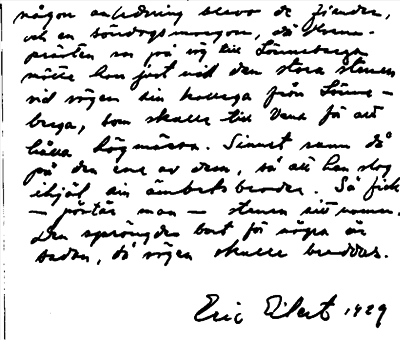 någon anledning blevo de fiender,
och en söndagsmorgon, då Vena-
prästen var på väg till Lönneberga
mötte han just vid den stora stenen
vid vägen sin kollega från Lönne-
berga, som skulle till Vena för att
hålla högmässa. Sinnet rann då
på den ene av dem, så att han slog
ihjäl sin ämbetsbroder. Så fick
– påstår man – stenen sitt namn.
Den sprängdes bort för några år
sedan, då vägen skulle breddas.
Eric 1929